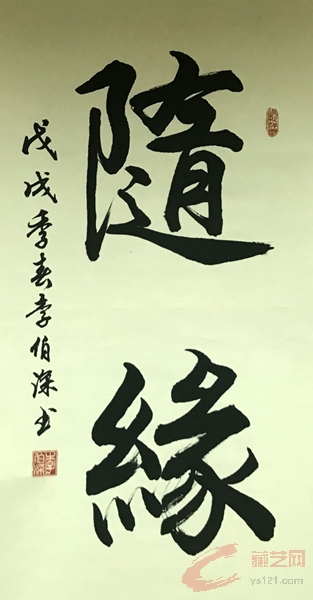 隨緣
戊戌季春李伯深书
藏艺网
ys121.com